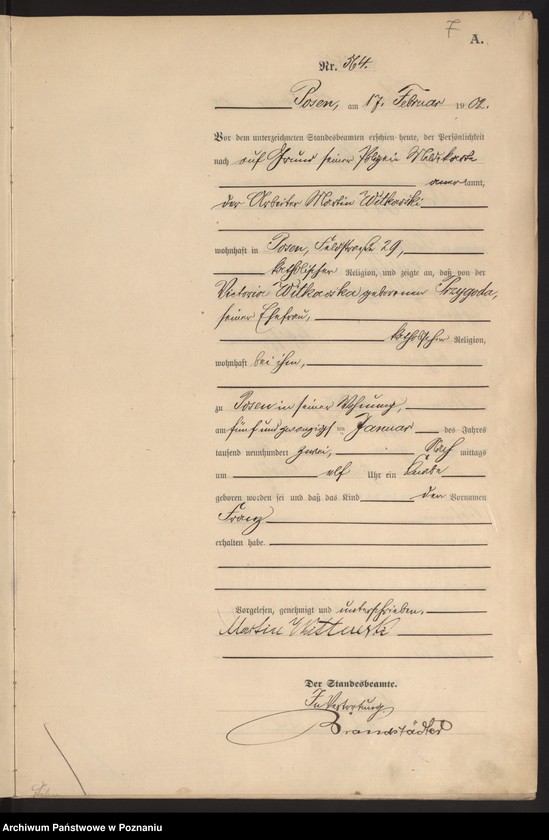 7
A.
Nr. 364.
Posen, am 17. Februar 1902.
Vor dem unterzeichneten Standesbeamten erschien heute, der Persönlichkeit
nach auf Grund seiner Polizei Meldekarte
anerkannt,
der Arbeiter Martin Witkowski
wohnhaft in Posen, Feldstraße 29,
katholischer Religion, und zeigte an, daß von der
Victoria Witkowska geborenen Przygoda,
seiner Ehefrau,
katholischer Religion,
wohnhaft bei ihm,
zu Posen in seiner Wohnung,
am fünf und zwanzigsten Januar des Jahres
tausend neunhundert zwei, Nachmittags
um elf Uhr ein Knabe
geboren worden sei und daß das Kind den Vornamen
Franz
erhalten habe.
Vorgelesen, genehmigt und unterschrieben.
Martin
Der Standesbeamte.
In Vertretung
Brandstädter
Archiwum Państwowe w Poznaniu